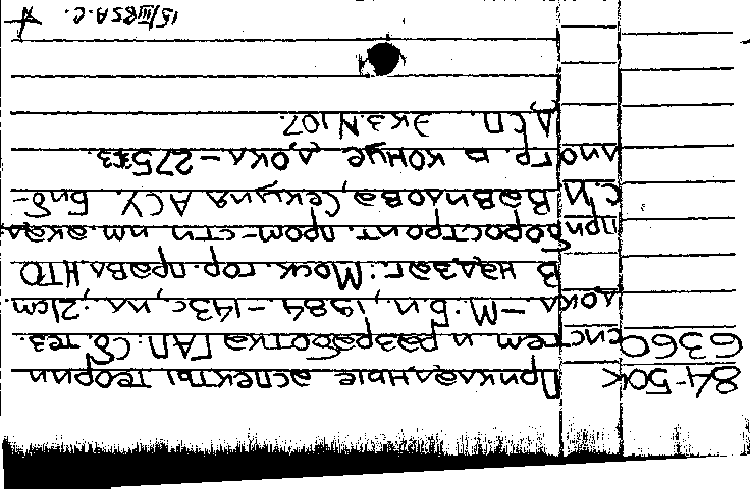 84-50к Прикладные аспекты теории
6360 систем и разработка ГАП: Сб. тез.
докл. – М.: Б.и., 1984. – 143с., ил.; 21см.
В надзаг.: Моск. гор. правл. НТО
приборостроит. пром-сти им. акад.
С.И. Вавилова, Секция АСУ. Биб-
лиогр. в конце докл. – 275экз.
ДСП. Экз.N107.
15/III85 А.С.